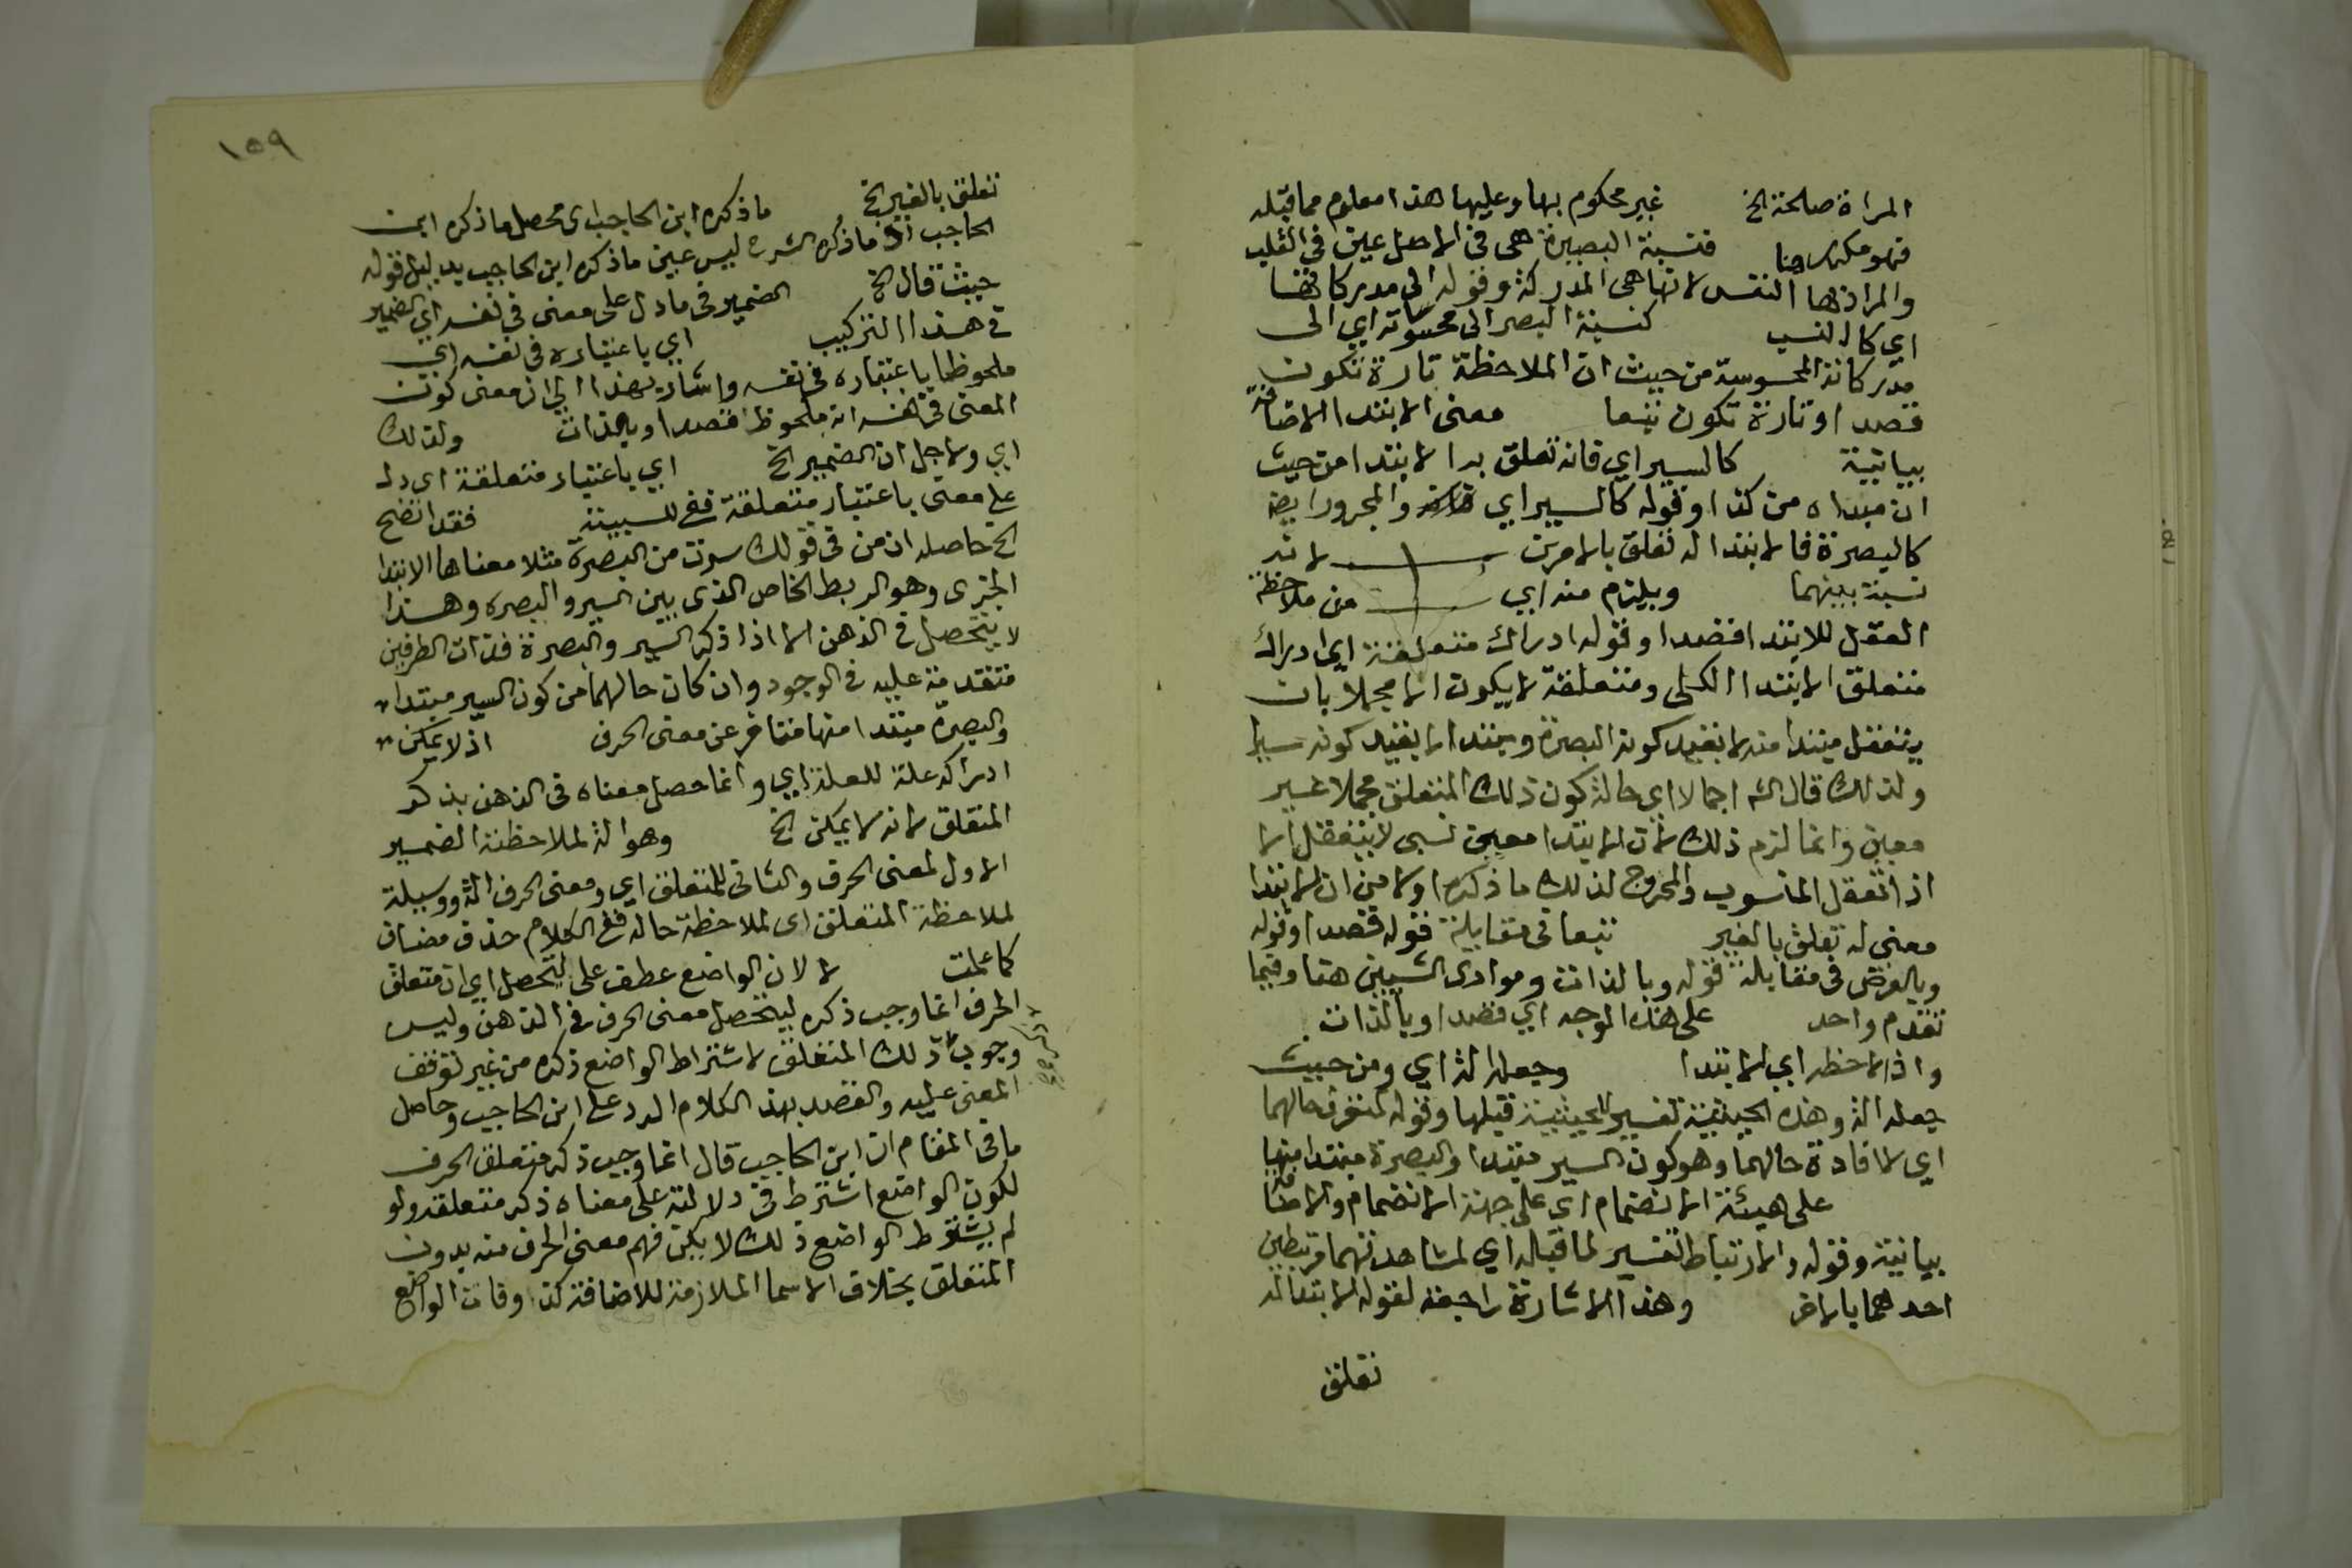 المراة صالحة الخ غير محكوم بها وعليها هذا معلوم مما قبله
فهو مكرر هنا فنسبة البصيرة هى في الاصل عين في القلب
والمراد بها النفس لانها هى المدركة وقوله الى مدركاتها
اي كالنسب كنسبة البصر الى محسوساته اي الى
مدركاته المحسوسة من حيث ان الملاحظة تارة تكون
قصدا وتارة تكون تبعا معنى الابتدا الاضافة
بيانية كالسير اي فانه تعلق به الابتدا من حيث
ان مبداه من كذا وقوله كالسير اي والمجرور ايضا
كالبصرة فالابتدا له تعلق بالامرين لانه
نسبة بينهما ويلزم منه اي من ملاحظة
العقل للابتدا قصدا وقوله ادراك متعلقة اي ادراك
متعلق الابتدا الكلى ومتعلقة لا يكون الا مجملا بان
يتعقل مبتدا منه لا بقيد كونه البصرة ومبتدا لا بقيد كونه سيرا
ولذلك قال الش اجمالا اي حالة كون ذلك المتعلق مجملا غير
معين وانما لزم ذلك لان الابتدا معنى نسبى لا يتعقل الا
اذا تعقل المنسوب والمحروج لذلك ما ذكره اولا من ان الابتدا
معنى له تعلق بالغير تبعا في مقابلة قوله قصدا وقوله
وبالعرض في مقابلة قوله وبالذات ومودى الشيئين هنا وفيما
تقدم واحد على هذا الوجه اي قصدا وبالذات
واذا لاحظه اي الابتدا وجعله الة اي ومن حيث
جعله الة وهذه الحيثية تفسير للحيثية قبلها وقوله لتعرف حالهما
اي لافادة حالهما وهو كون السير مبتدا والبصرة مبتدا منها
على هيئة الانضمام اي على جهة الانضمام والاضافة
بيانية وقوله والارتباط تفسير لما قبله اي لمشاهدتهما مرتبطين
احدهما بالاخر وهذا الاشارة راجعة لقوله الابتدا له
تعلق
١٥٩
تعلق بالغير الخ ما ذكره ابن الحاجب اى محصل ما ذكره ابن
الحاجب اذ ما ذكره الشرح ليس عين ما ذكره ابن الحاجب بدليل قوله
حيث قال الخ الضمير في ما دل على معنى في نفسه اي الضمير
في هذا التركيب اي باعتباره في نفسه اي
ملحوظا باعتباره في نفسه واشار بهذا الى ان معنى كون
المعنى في نفسه انه ملحوظ قصدا وبالذات ولذلك
اي ولاجل ان الضمير الخ اي باعتبار متعلقة اى دل
على معنى باعتبار متعلقة ففي للسببية فقد اتضح
الخ حاصله ان من في قولك سرت من البصرة مثلا معناها الابتدا
الجزى وهو الربط الخاص الذى بين السير والبصره وهذا
لا يتحصل في الذهن الا اذا ذكر السير والبصرة فذات الطرفين
متقدمة عليه في الوجود وان كان حالهما من كون السير مبتدا
والبصرة مبتدا منها متاخر عن معنى الحرف اذ لا يمكن
ادراكه علة للعلة اي وانما حصل معناه في الذهن بذكر
المتعلق لانه لا يمكن الخ وهو الة لملاحظته الضمير
الاول لمعنى الحرف والثانى للمتعلق اي ومعنى الحرف الة ووسيلة
لملاحظة المتعلق اى لملاحظة حاله ففي الكلام حذف مضاف
كما علمت لا لان الواضع عطف على ليتحصل اي ان متعلق
الحرف انما وجب ذكره ليتحصل معنى الحرف في الذهن وليس
وجوب ذلك المتعلق لاشتراط الواضع ذكره من غير توقف
المعنى عليه والقصد بهذا الكلام الرد على ابن الحاجب وحاصل
ما في المقام ان ابن الحاجب قال انما وجب ذكر متعلق الحرف
لكون الواضع اشترط في دلالته على معناه ذكر متعلقه ولو
لم يشترط الواضع ذلك لامكن فهم معنى الحرف منه بدون
المتعلق بخلاف الاسما الملازمة للاضافة كذو وفان الواضع